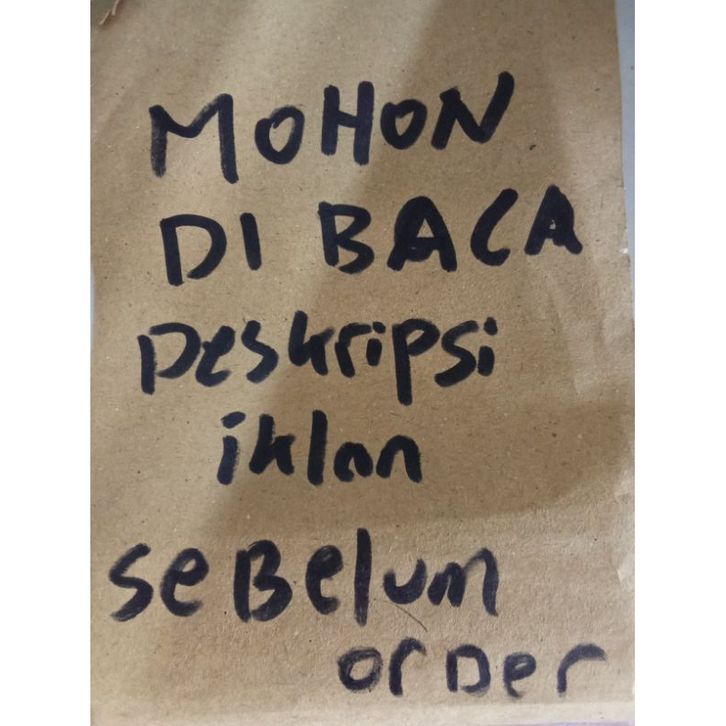 MOHON
DI BACA
Deskripsi
iklan
seBelum
orDer